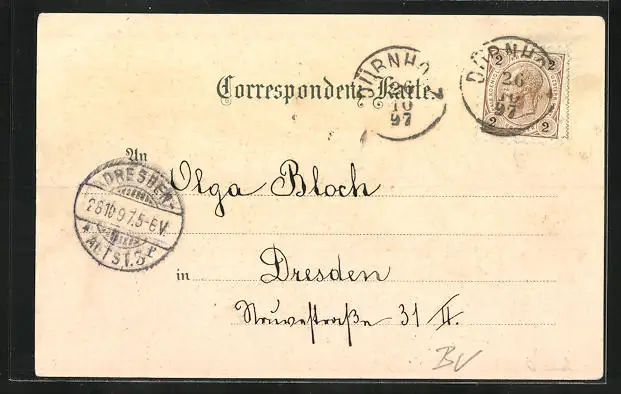 Correspondenz-Karte.
DÜRNHO
26
10
97
DÜRNHO
26
10
97
2 2
2 2
An Olga Bloch
DRESDEN-
28.10.97.5-6V.
* ALTST.3 *
in Dresden
31 II.
BV